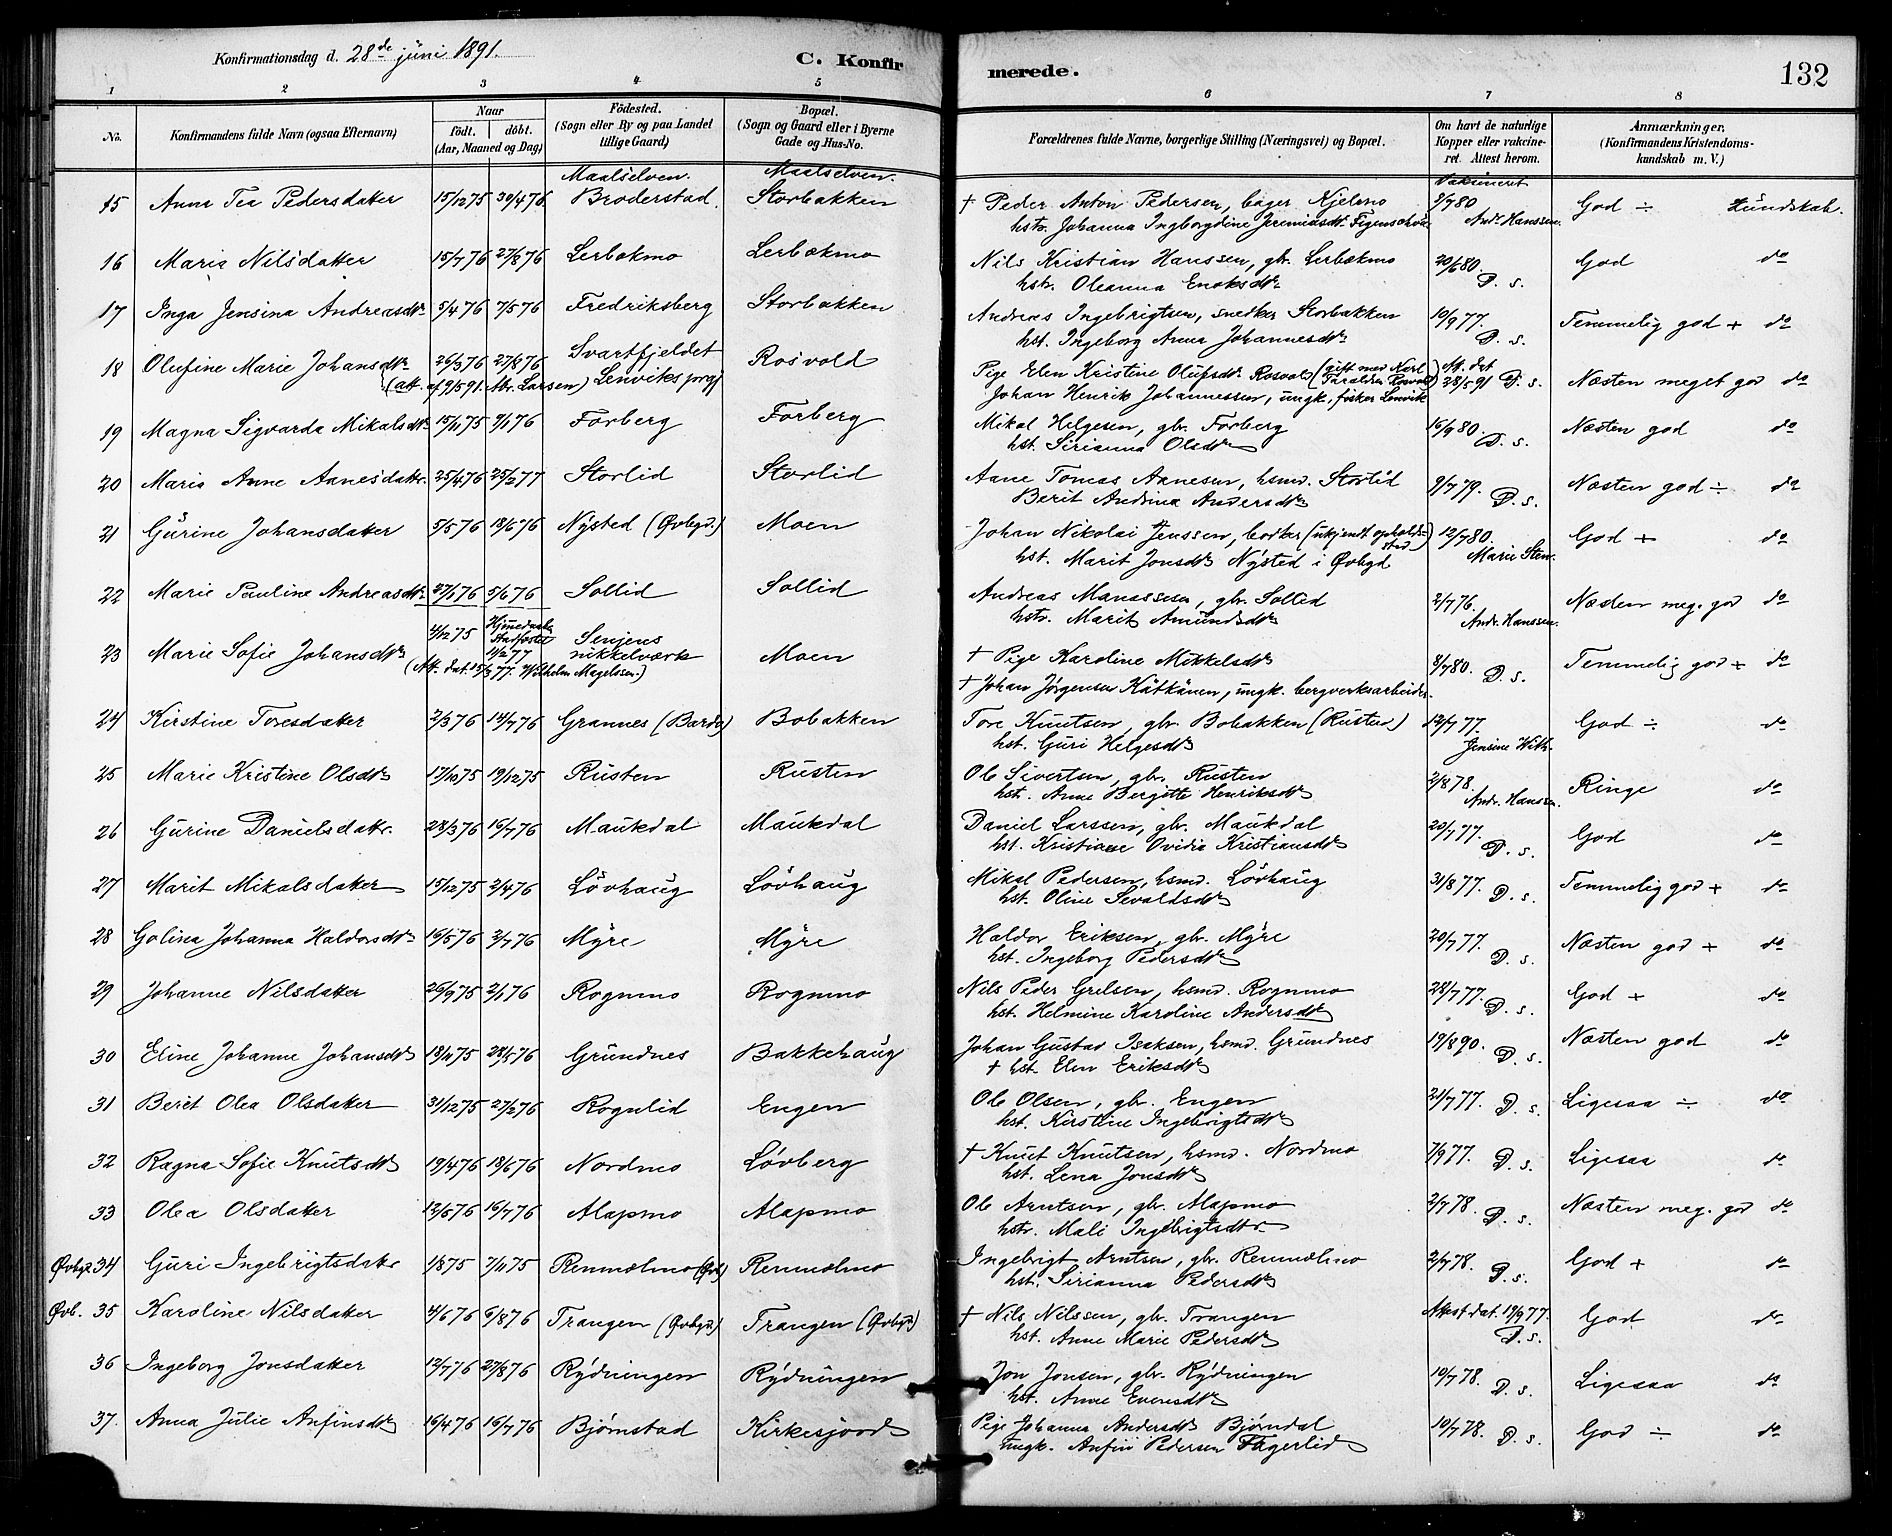 Konfirmationsdag d. 28de juni 1891.
C. Konfirmerede.
132
1 2 3 4 5 6 7 8
No.
Konfirmandens fulde Navn (ogsaa Efternavn)
Naar
födt. döbt.
(Aar, Maaned og Dag)
Födested.
(Sogn eller By og paa Landet
tillige Gaard)
Bopæl.
(Sogn og Gaard eller i Byerne
Gade og Hus-No.
Forældrenes fulde Navne, borgerlige Stilling (Næringsvei) og Bopæl.
Om havt de naturlige
Kopper eller vakcine-
ret. Attest herom.
Anmærkninger.
(Konfirmandens Kristendoms-
kundskab m. V.)
Maalselven. Maalselven. Vaksineret
15 Anna Tea Pedersdatter 15/12 75 30/4 76 Broderstad. Storbakken † Peder Anton Pedersen, bager Kjelmo 9/7 80 God ÷ Kundskab.
hstr. Johanna Ingborgdine Jeremiasdtr Figenschou Andr. Hanssen.
16 Maria Nilsdatter 15/7 76 27/8 76 Lerbakmo Lerbakmo Nils Kristian Hanssen, gbr. Lerbakmo 20/6 80. God do
hstr. Oleanna Enoksdtr D. s.
17 Inga Jensina Andreasdtr 5/4 76 7/5 76 Fredriksberg Storbakken Andreas Ingebrigtsen, snedker Storbakken 10/9 77. Temmelig god + do
hst. Ingeborg Anna Johannesdtr D. s.
18 Olufine Marie Johansdtr 26/3 76 27/8 76 Svartfjeldet Rosvold Pige Elen Kristine Olufsdtr Rosvold (gift med Karl Taraldsen Rosvold) Att. dat 28/5 91 D. s. Næsten meget god do
(att. af 9/5 91. Mr. Larssen) Lenviks prgj Johan Henrik Johannessen, ungk., fisker Lenvik
19 Magna Sigvarda Mikalsdtr 15/11 75 9/1 76 Forberg Forberg Mikal Helgesen, gbr. Forberg 16/9 80. Næsten god do
hst. Sirianna Olsdtr D. s.
20 Maria Anne Aanesdattr. 25/4 76 25/2 77 Storlid Storlid Aane Tomas Aanesen, hsmd. Storlid 9/7 79. Næsten god ÷ do
Berit Andrina Andersdtr D. s.
21 Gurine Johansdatter 5/5 76 18/6 76 Nysted (Øvbgd.) Moen Johan Nikolai Jenssen, bødker (ukjendt opholdssted) 12/7 80. God + do
hst. Marit Jonsdtr Nysted i Øvbgd Marie Sten
22 Marie Pauline Andreasdtr 27/1 76 5/6 76 Sollid Sollid Andreas Manassesen, gbr. Sollid 2/7 76. Næsten meg. god do
hstr. Marit Amundsdtr Andr. Hanssen.
23 Marie Sofie Johansdtr 4/12 75 Hjemedaab Stadfæstet 11/2 77 Senjens nikkelværk Moen † Pige Karoline Mikkelsdtr 8/7 80. D. s. Temmelig god + do
(Att. dat. 15/3 77. Wilhelm Magelssen.) † Johan Jørgensen Kätkänen, ungk. bergverksarbeider.
24 Kirstine Toresdatter 2/3 76 14/7 76 Grannes (Bardo) Bobakken Tore Knutsen, gbr. Bobakken (Rusten) 12/7 77. God ÷ do
hst. Guri Helgesdtr Jensine With.
25 Marie Kristine Olsdtr 17/10 75 19/12 75 Rusten Rusten Ole Sivertsen, gbr. Rusten 2/8 78. Ringe do
hst. Anne Bergitte Henriksdtr Andr. Hanssen.
26 Gurine Danielsdatr. 28/3 76 16/7 76 Maukdal Maukdal Daniel Larssen, gbr. Maukdal 20/7 77. God do
hst. Kristiane Ovidia Kristiansdtr D. s.
27 Marit Mikalsdatter 15/12 75 2/4 76 Lövhaug Lövhaug Mikal Pedersen, hsmd. Lövhaug 31/8 77. Temmelig god + do
hst. Oline Sivaldsdtr D. s.
28 Golina Johanna Haldorsdtr 16/5 76 2/7 76 Myre Myre Haldor Eriksen, gbr. Myre 20/7 77. Næsten god + do
hst. Ingeborg Pedersdtr D. s.
29 Johanne Nilsdatter 26/9 75 2/1 76 Rognmo Rognmo Nils Peder Grelsen, hsmd. Rognmo 28/7 77. God + do
hst. Helmine Karoline Andersdtr D. s.
30 Eline Johanne Johansdtr 18/11 75 28/5 76 Grundnes Bakkehaug Johan Gustav Isaksen, hsmd. Grundnes 19/8 90. Næsten god do
† hst. Elen Eriksdtr D. s.
31 Beret Olea Olsdatter 31/12 75 27/2 76 Rognlid Engen Ole Olsen, gbr. Engen 21/7 77. D. s. Ligesaa ÷ do
hst. Kirstine Ingebrigtsdtr
32 Ragna Sofie Knutsdtr 19/4 76 18/6 76 Nordmo Lövberg † Knut Knutsen, hsmd. Nordmo 7/9 77. D. s. Ligesaa do
hst. Lena Jonsdtr
33 Olea Olsdatter 12/6 76 16/7 76 Alapmo Alapmo Ole Arntsen, gbr. Alapmo 2/7 78. D. s. Næsten meg. god do
hstr. Mali Ingebrigtsdtr
Øvbgd. 34 Guri Ingebrigtsdatr 1/8 75 7/11 75 Renmælmo (Øvb) Renmælmo Ingebrigt Arntsen, gbr. Renmælmo 2/7 78. God + do
hst. Sirianna Pedersdtr D. s.
Øvb. 35 Karoline Nilsdatter 4/6 76 6/8 76 Trangen (Øvbgd) Trangen (Øvbgd) † Nils Nilssen, gbr. Trangen Attest dat. 19/9 77. God do
hst. Anne Marie Pedersdtr D. s.
36 Ingeborg Jonsdatter 12/7 76 27/8 76 Rydningen Rydningen Jon Jonsen, gbr. Rydningen 10/7 78. D. s. Ligesaa do
hst. Anne Evensdtr
37. Anna Julie Anfinsdtr 16/4 76 16/7 76 Bjørnstad Kirkesjord Pige Johanna Andersdtr Bjørndal 10/7 78. D. s. God ÷ do
ungk. Anfin Pedersen Fagerlid